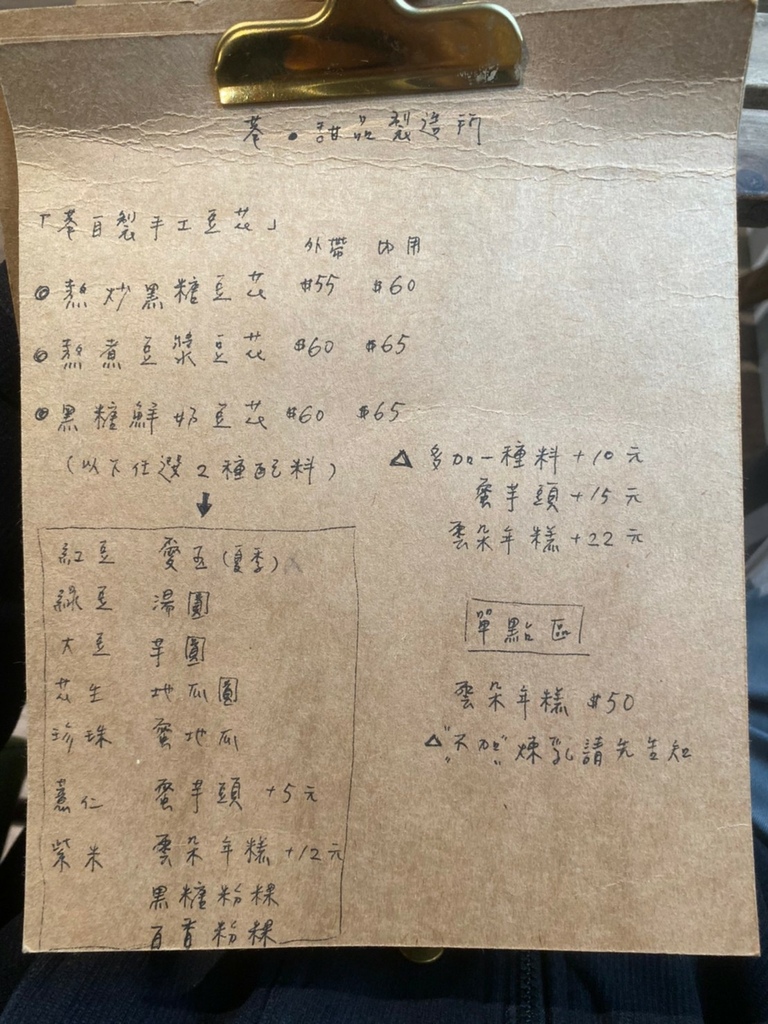 苓。甜品製造所
「苓自製手工豆花」
外帶 內用
熬炒黑糖豆花 $55 $60
熬煮豆漿豆花 $60 $65
黑糖鮮奶豆花 $60 $65
(以下任選2種配料)
紅豆 愛玉(夏季)
綠豆 湯圓
大豆 芋圓
花生 地瓜圓
珍珠 蜜地瓜
薏仁 蜜芋頭 +5元
紫米 雲朵年糕 +12元
黑糖粉粿
百香粉粿
△ 多加一種料 +10元
蜜芋頭 +15元
雲朵年糕 +22元
單點區
雲朵年糕 $50
△"不加"煉乳請先告知